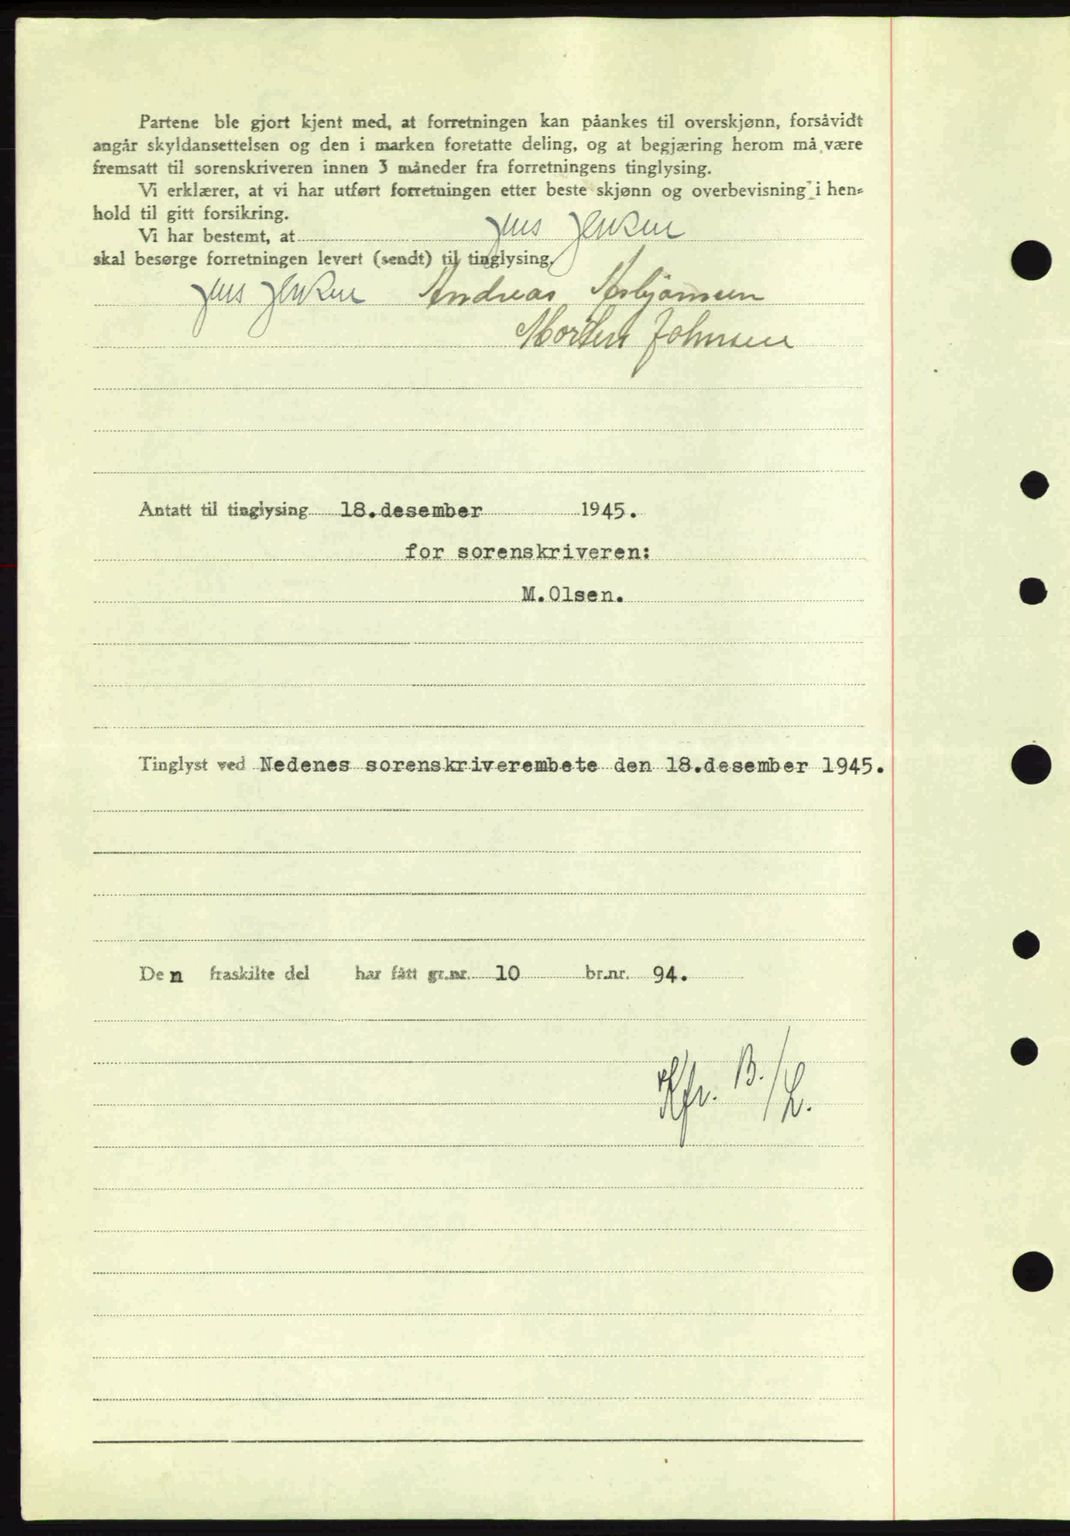 Partene ble gjort kjent med, at forretningen kan påankes til overskjønn, forsåvidt
angår skyldansettelsen og den i marken foretatte deling, og at begjæring herom må være
fremsatt til sorenskriveren innen 3 måneder fra forretningens tinglysing.
Vi erklærer, at vi har utført forretningen etter beste skjønn og overbevisning i hen-
hold til gitt forsikring.
Vi har bestemt, at Jens Jensen
skal besørge forretningen levert (sendt) til tinglysing.
Jens Jensen Andreas Asbjørnsen
Morten Johnsen
Antatt til tinglysing 18.desember 1945.
for sorenskriveren:
M.Olsen.
Tinglyst ved Nedenes sorenskriverembete den 18.desember 1945.
Den fraskilte del har fått gr.nr. 10 br.nr. 94.
Kfr. B./L.